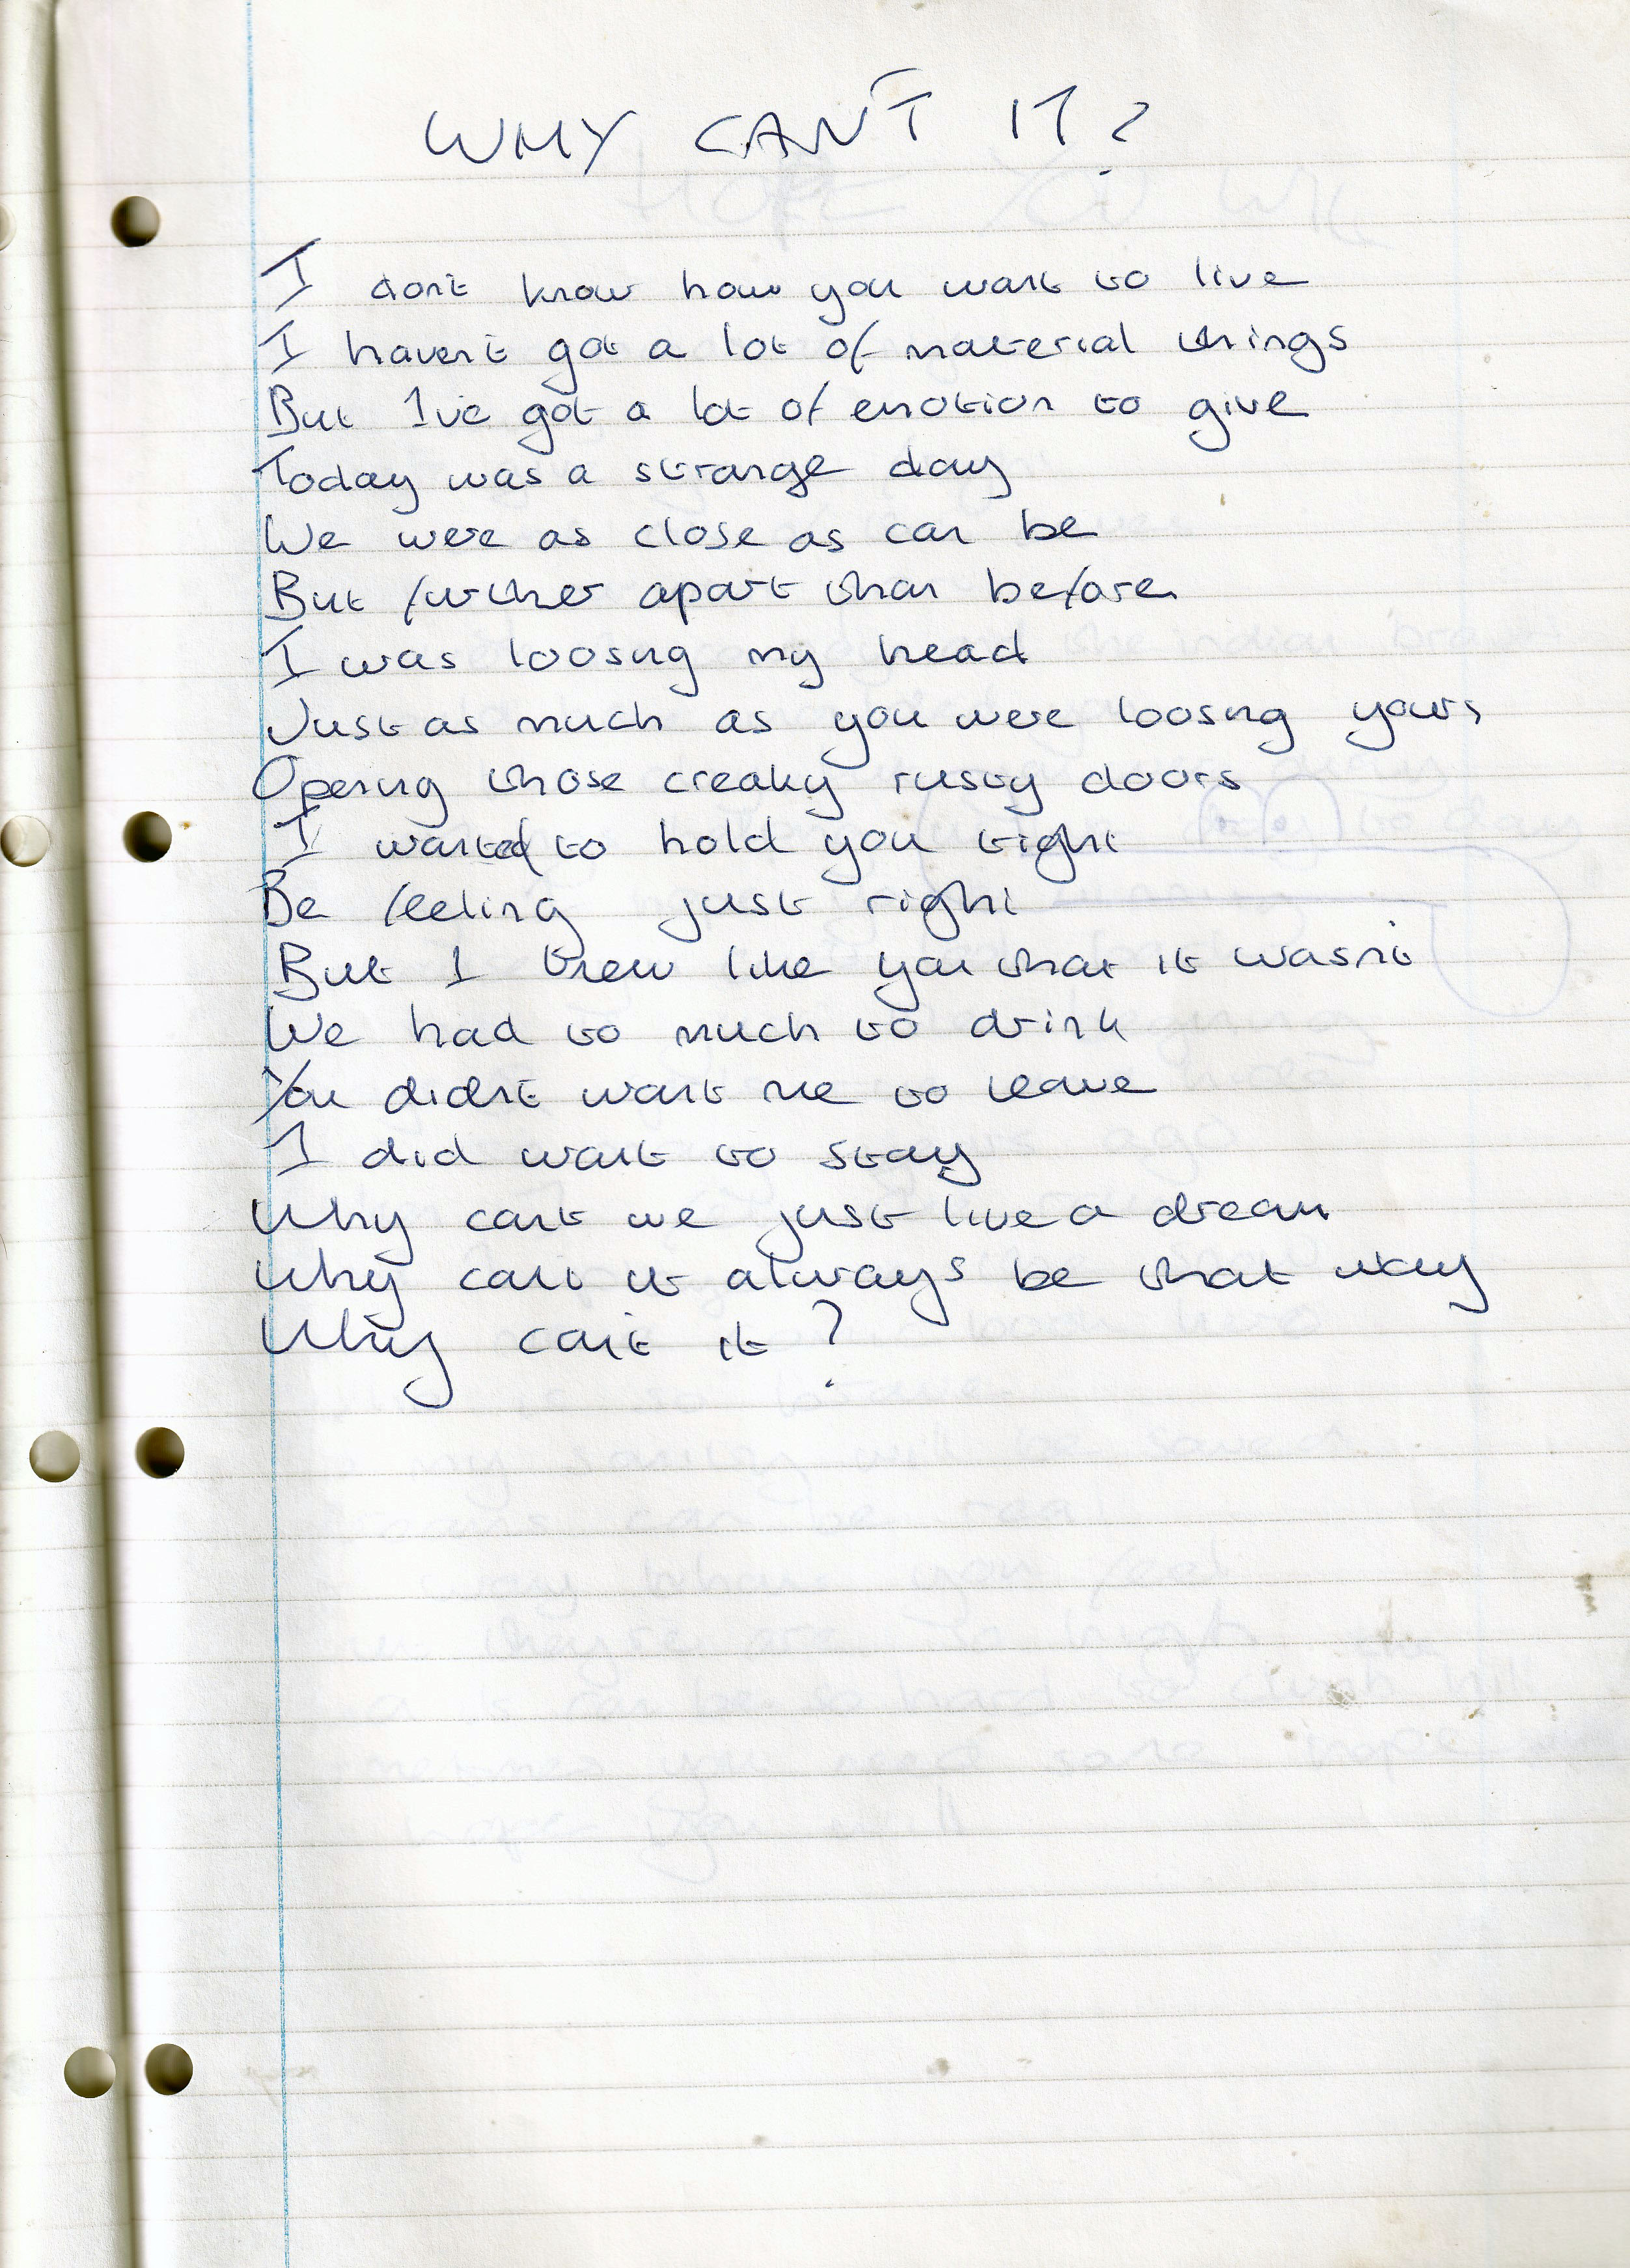 WHY CAN'T IT?
I don't know how you want to live
I haven't got a lot of material things
But I've got a lot of emotion to give
Today was a strange day
We were as close as can be
But further apart than before
I was loosing my head
Just as much as you were loosing yours
Opening those creaky rusty doors
I wanted to hold you tight
Be feeling just right
But I knew like you that it wasn't
We had to much to drink
You didn't want me to leave
I did want to stay
Why cant we just live a dream
Why cant it always be that way
Why can't it?